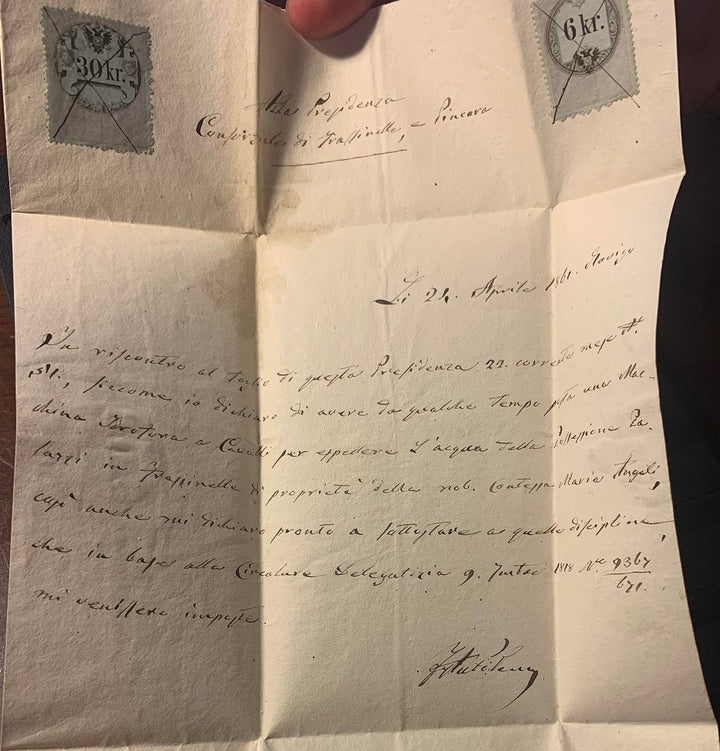 30 kr.
6 kr.
Alla Presidenza
Consorziale di Frassinella, e Pincara
Li 24. Aprile 1861. Rovigo
In riscontro al foglio di questa Presidenza 22. corrente mese Nº
151., siccome io dichiaro di avere da qualche tempo posta una Mac-
china Idrofora a Cavalli per espellere l'acqua della Possessione Pa-
lazzi in Frassinella di proprietà della nob. Contessa Maria Angeli,
così anche mi dichiaro pronto a sottostare a quelle discipline,
che in base alla Circolare Delegatizia 9. 1818 Nº 9367
/671.
mi venissero imposte.